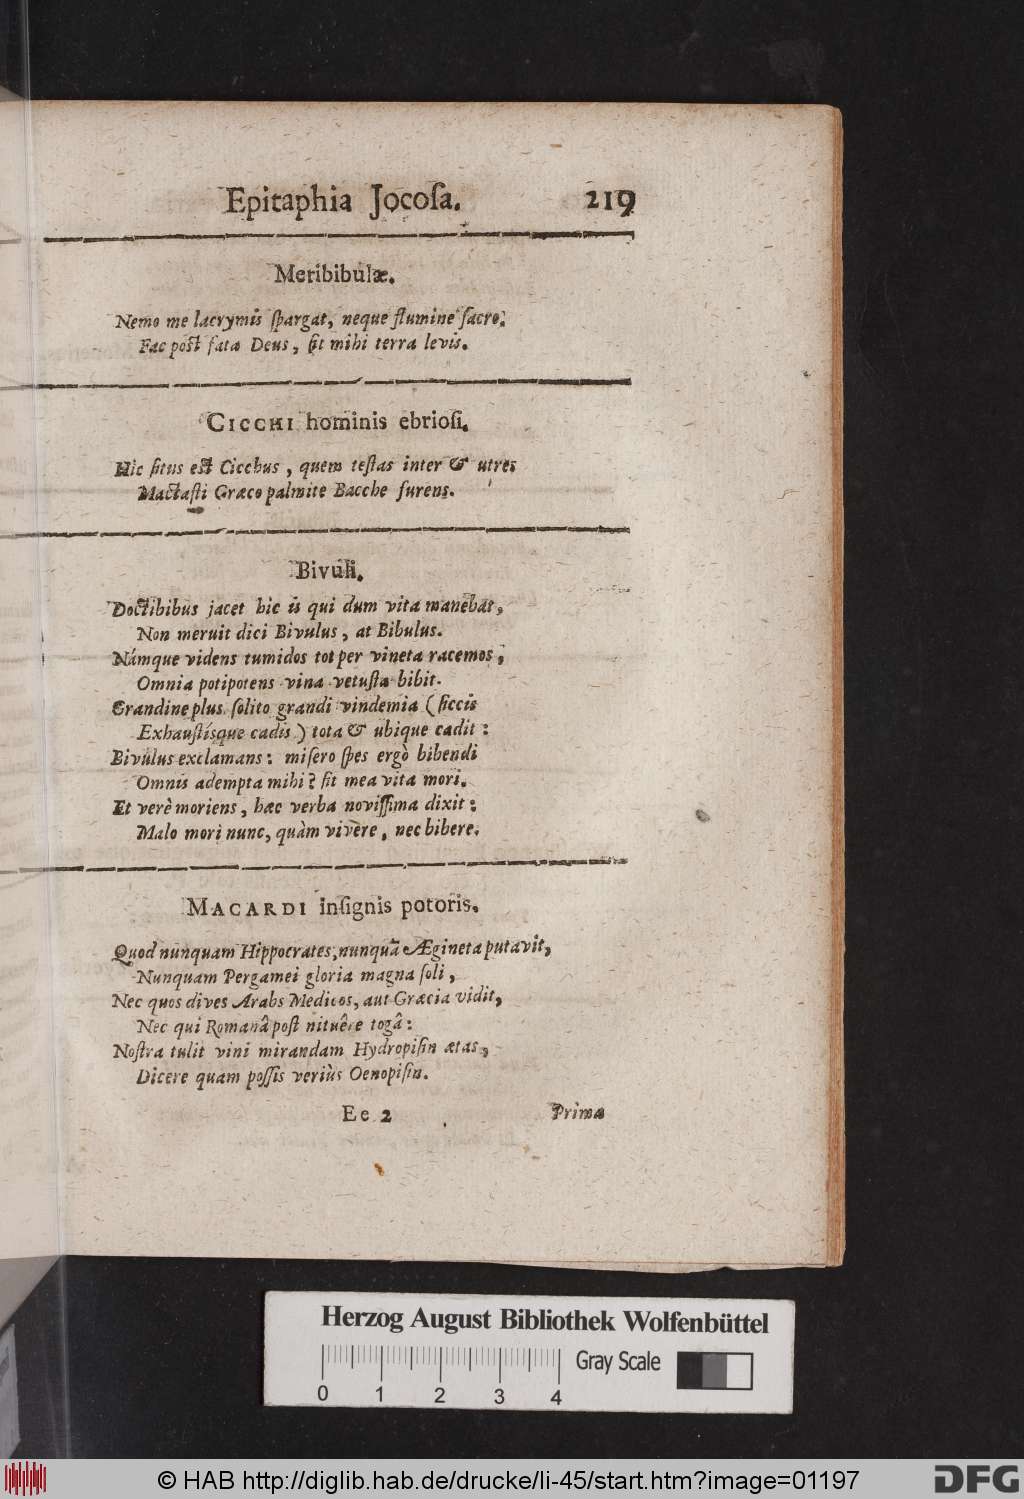 Epitaphia Jocoſa. 219
Meribibulæ.
Nemo me lacrymis ſpargat, neque flumine ſacro:
Fac poſt fata Deus, ſit mihi terra levis.
CICCHI hominis ebrioſi.
Hic ſitus eſt Cicchus, quem teſtas inter & utres
Mactaſti Græco palmite Bacche furens.
Bivuli.
Doctibibus jacet hic is qui dum vita manebat,
Non meruit dici Bivulus, at Bibulus.
Námque videns tumidos tot per vineta racemos,
Omnia potipotens vina vetuſta bibit.
Grandine plus ſolito grandi vindemia (ſiccis
Exhauſtísque cadis) tota & ubique cadit:
Bivulus exclamans: miſero ſpes ergò bibendi
Omnis adempta mihi? ſit mea vita mori.
Et verè moriens, hæc verba noviſſima dixit:
Malo mori nunc, quàm vivere, nec bibere.
MACARDI inſignis potoris.
Quod nunquam Hippocrates, nunquã Ægineta putavit,
Nunquam Pergamei gloria magna ſoli,
Nec quos dives Arabs Medicos, aut Græcia vidit,
Nec qui Romanâ poſt nituêre togâ:
Noſtra tulit vini mirandam Hydropiſin ætas,
Dicere quam poſſis veriùs Oenopiſin.
Ee 2 Primæ
Herzog August Bibliothek Wolfenbüttel
Gray Scale
0 1 2 3 4
© HAB http://diglib.hab.de/drucke/li-45/start.htm?image=01197
DFG